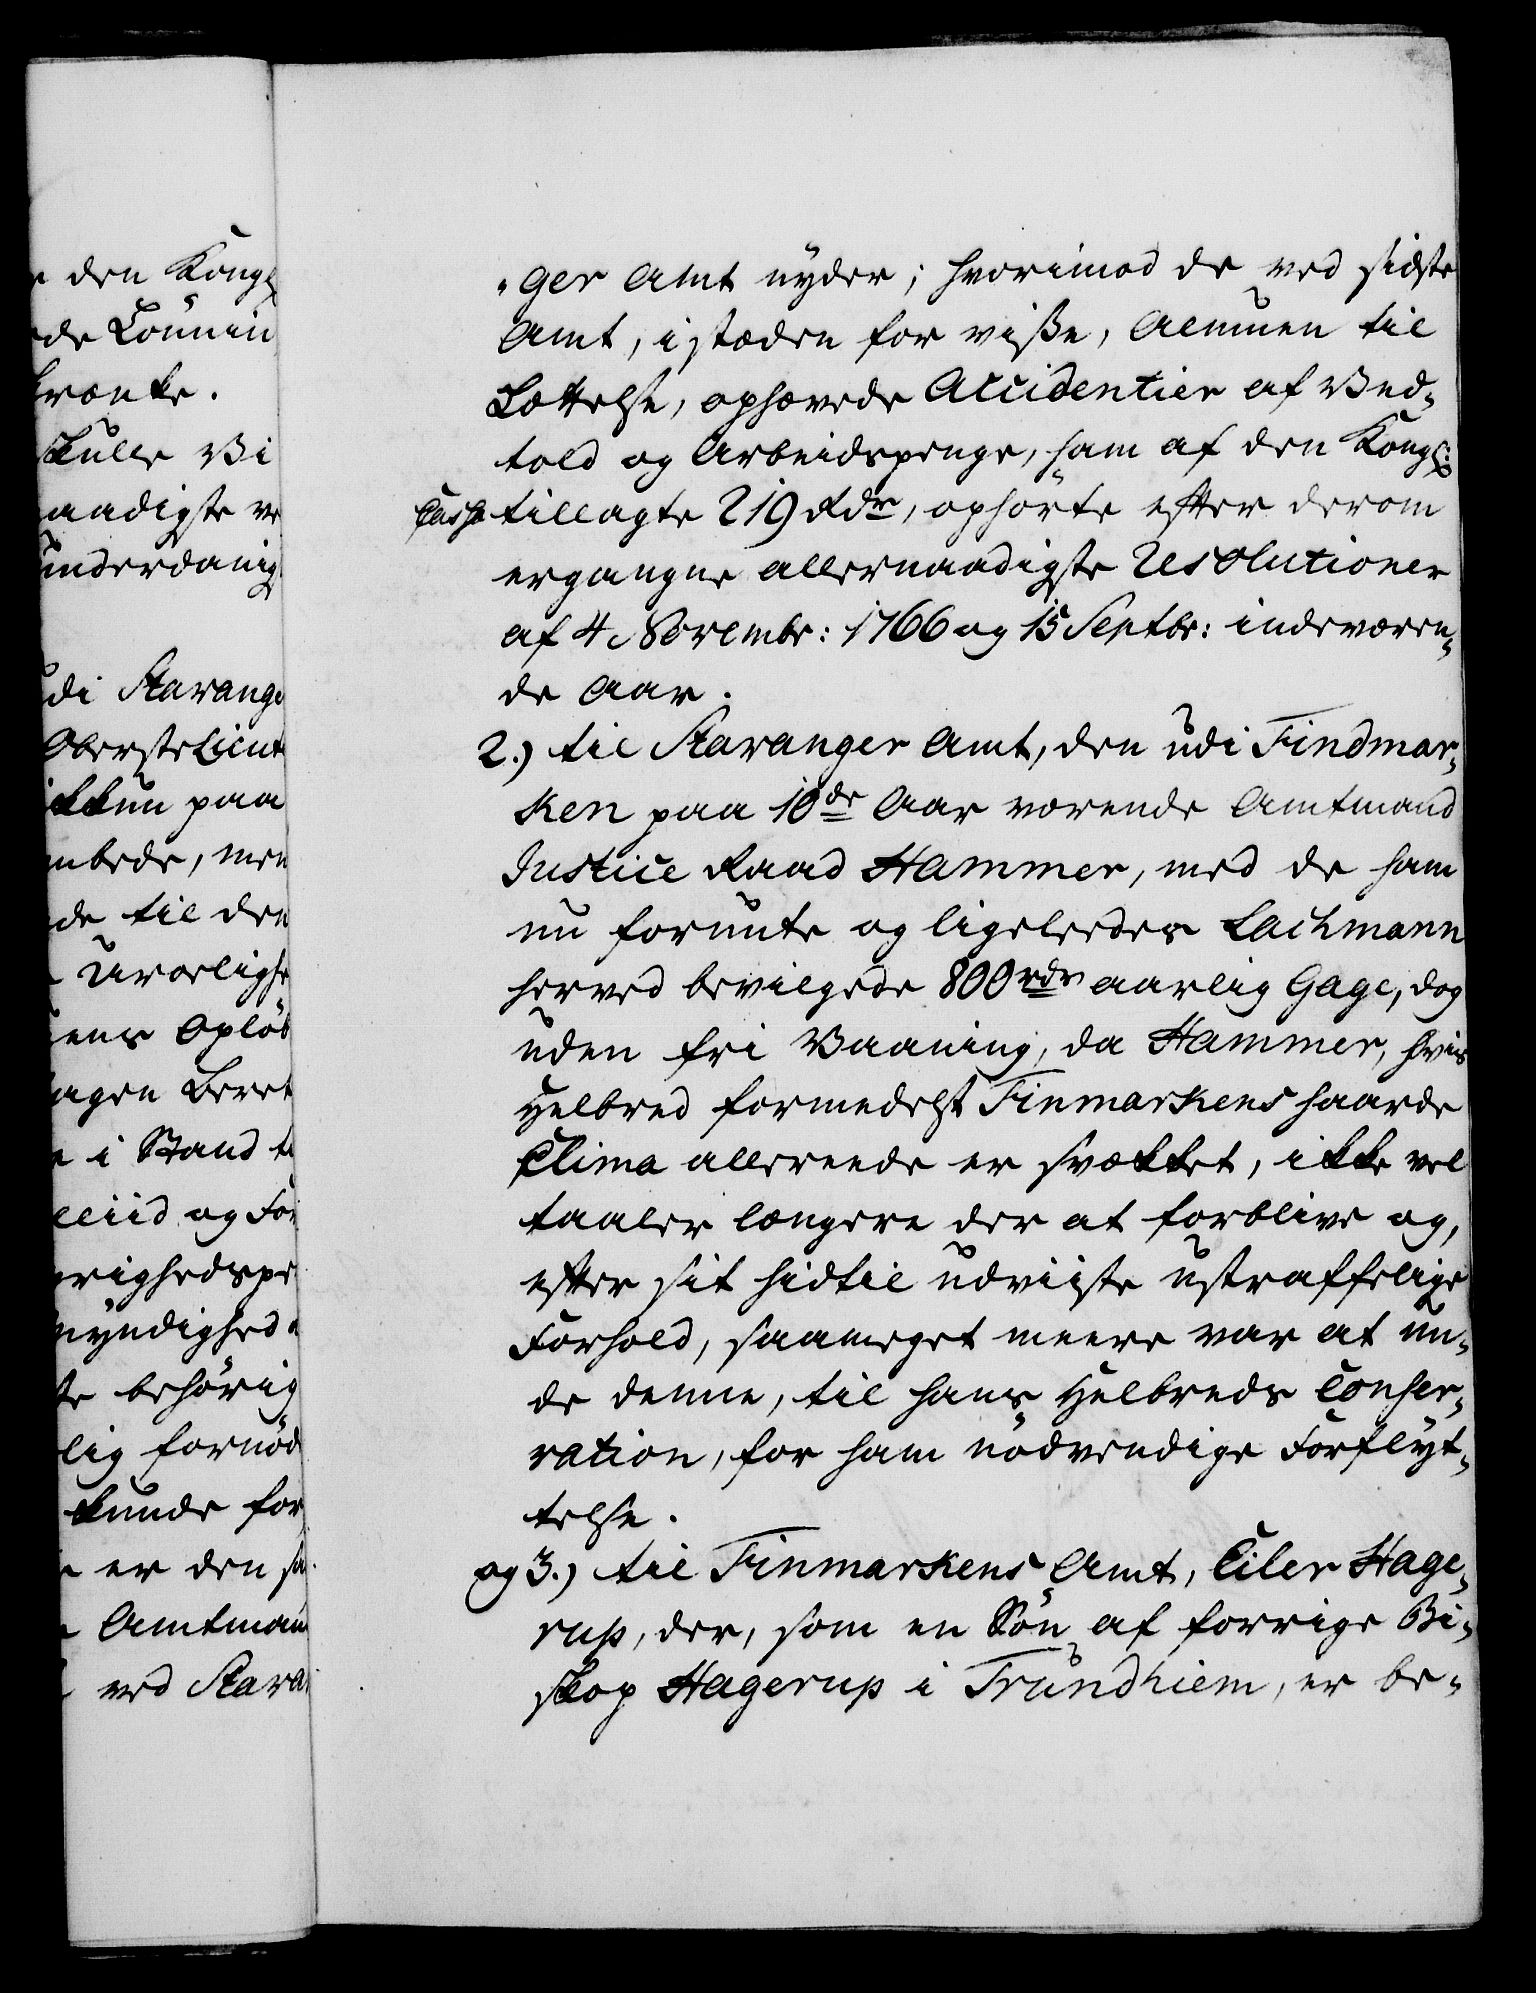 e den Kongl:
de Commis
krænke.
skulle Vi
naadigste ve
underdanig
di Stavange
Oberstelieut
ikkun paa
mbede, men
de til den
Uroelighe
ens Opløb
agen Beret
e i Stand ti
lliid og For
righedspe
myndighed
te behørig
lig fornød
kunde for
er den sa
Amtman
ved Stava
„ger Amt nyder; hvorimod de ved sidste
Amt, i stæden for visse, Almuen til
Lættelse, ophævede Accidentier af Ved-
told og Arbeidspenge, ham af den Kongl:
Cassa tillagte 219 Rdr, ophørte efter derom
ergangne allernaadigste Resolutioner
af 4 Novembr: 1766 og 15 Septbr: indeværen-
de Aar.
2.) til Stavanger Amt, den udi Findmar-
ken paa 10de Aar værende Amtmand
Justice Raad Hammer, med de ham
nu forunte og ligeleedes Lachmann
herved bevilgede 800 rdr aarlig Gage, dog
uden fri Vaaning, da Hammer, hvis
Helbred formedelst Finmarkens haarde
Clima allereede er svækket, ikke vel
taaler længere der at forblive og,
efter sit hidtil udviiste ustraffelige
Forhold, saameget meere var at un-
de denne, til hans Helbreds Conser-
vation, for ham nødvendige Forflyt-
telse.
og 3.) til Finmarkens Amt, Eiler Hage-
rup, der, som en Søn af forrige Bi-
skop Hagerup i Trundhiem, er be-